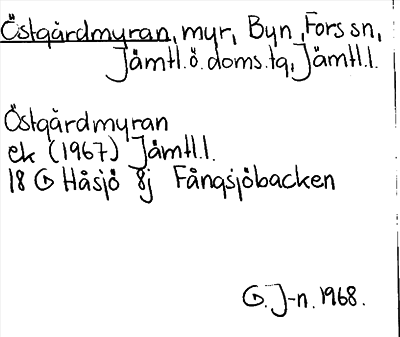 Östgårdmyran, myr, Byn, Fors sn,
Jämtl.ö.doms.tg, Jämtl.l.
Östgårdmyran
ek (1967) Jämtl.l.
18 G Håsjö 8j Fångsjöbacken
G. J-n. 1968.